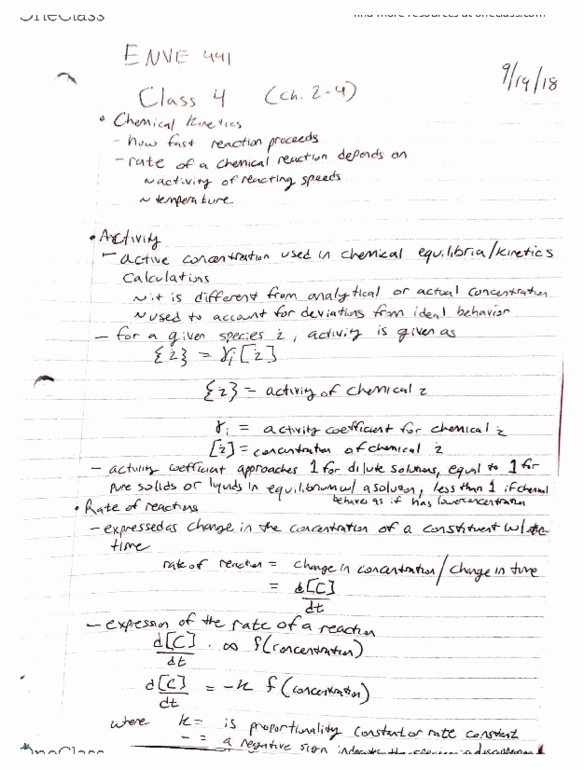 OneClass
find more resources at oneclass.com
ENVE 441
9/19/18
Class 4 (ch. 2-4)
• Chemical Kinetics
- how fast reaction proceeds
- rate of a chemical reaction depends on
~ activity of reacting speeds
~ temperature
• Activity
- active concentration used in chemical equilibria/kinetics
calculations
~ it is different from analytical or actual concentration
~ used to account for deviations from ideal behavior
- for a given species i, activity is given as
{i} = γi [i]
{i} = activity of chemical i
γi = activity coefficient for chemical i
[i] = concentration of chemical i
- activity coefficient approaches 1 for dilute solutions, equal to 1 for
pure solids or liquids in equilibrium w/ a solution, less than 1 if chemical
behaves as if has lower concentration
• Rate of reactions
- expressed as change in the concentration of a constituent w/
time
rate of reaction = change in concentration / change in time
= d[C]/dt
- expression of the rate of a reaction
d[C]/dt ∞ f(concentration)
d[C]/dt = -k f(concentration)
where k = is proportionality constant or rate constant
- = a negative sign indicates the species is
OneClass